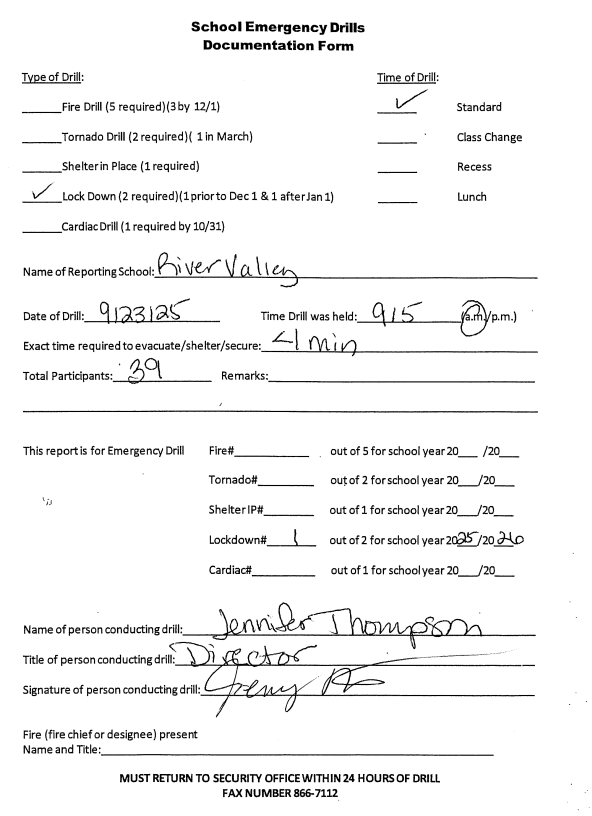 School Emergency Drills
Documentation Form
Type of Drill: Time of Drill:
______Fire Drill (5 required)(3 by 12/1) ✓ Standard
______Tornado Drill (2 required)( 1 in March) ______ Class Change
______Shelter in Place (1 required) ______ Recess
✓ Lock Down (2 required)(1 prior to Dec 1 & 1 after Jan 1) ______ Lunch
______Cardiac Drill (1 required by 10/31)
Name of Reporting School: River Valley
Date of Drill: 9123125 Time Drill was held: 915 (a.m./p.m.)
Exact time required to evacuate/shelter/secure: <1 min
Total Participants: 39 Remarks:
This report is for Emergency Drill Fire#________ out of 5 for school year 20___ /20___
Tornado#________ out of 2 for school year 20___/20___
Shelter IP#________ out of 1 for school year 20___/20___
Lockdown# 1 out of 2 for school year 2025/20 26
Cardiac#________ out of 1 for school year 20___/20___
Name of person conducting drill: Jennifer Thompson
Title of person conducting drill: Director
Signature of person conducting drill:
Fire (fire chief or designee) present
Name and Title:
MUST RETURN TO SECURITY OFFICE WITHIN 24 HOURS OF DRILL
FAX NUMBER 866-7112